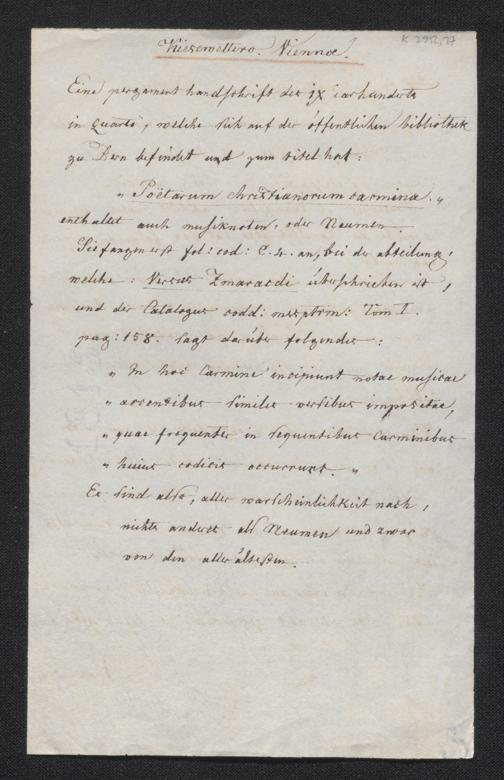 K 2952,27
Kiesewettero. Viennae.
Eine pergament handschrift des IX iarhunderts
in Quarto, welche sich auf der öffentlichen bibliothek
zu Bern befindet und zum titel hat:
„ Poëtarum christianorum carmina. „
enthaltet auch musiknoten, oder Neumen.
Sie fangen erst fol: cod: C. 4. an, bei der abteilung,
welche: Versus Smaracdi überschrieben ist,
und der Catalogus codd: mssptrm: Tom I.
pag: 158. sagt darüber folgendes:
„ In hoc Carmine incipiunt notae musicae
„ accentibus similes versibus impositae,
„ quae frequenter in sequentibus Carminibus
„ huius codicis occurrunt. „
Es sind also, aller warscheinlichkeit nach,
nichts anderes als Neumen und zwar
von den aller ältesten.